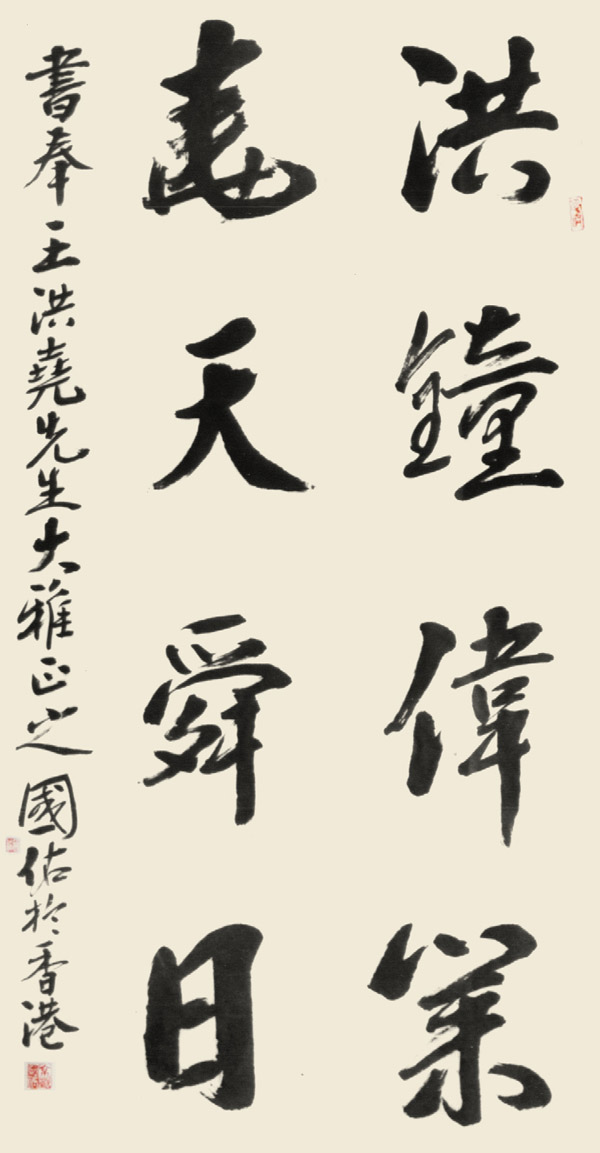 洪鐘偉業
堯天舜日
書奉王洪堯先生大雅正之 國佑於香港